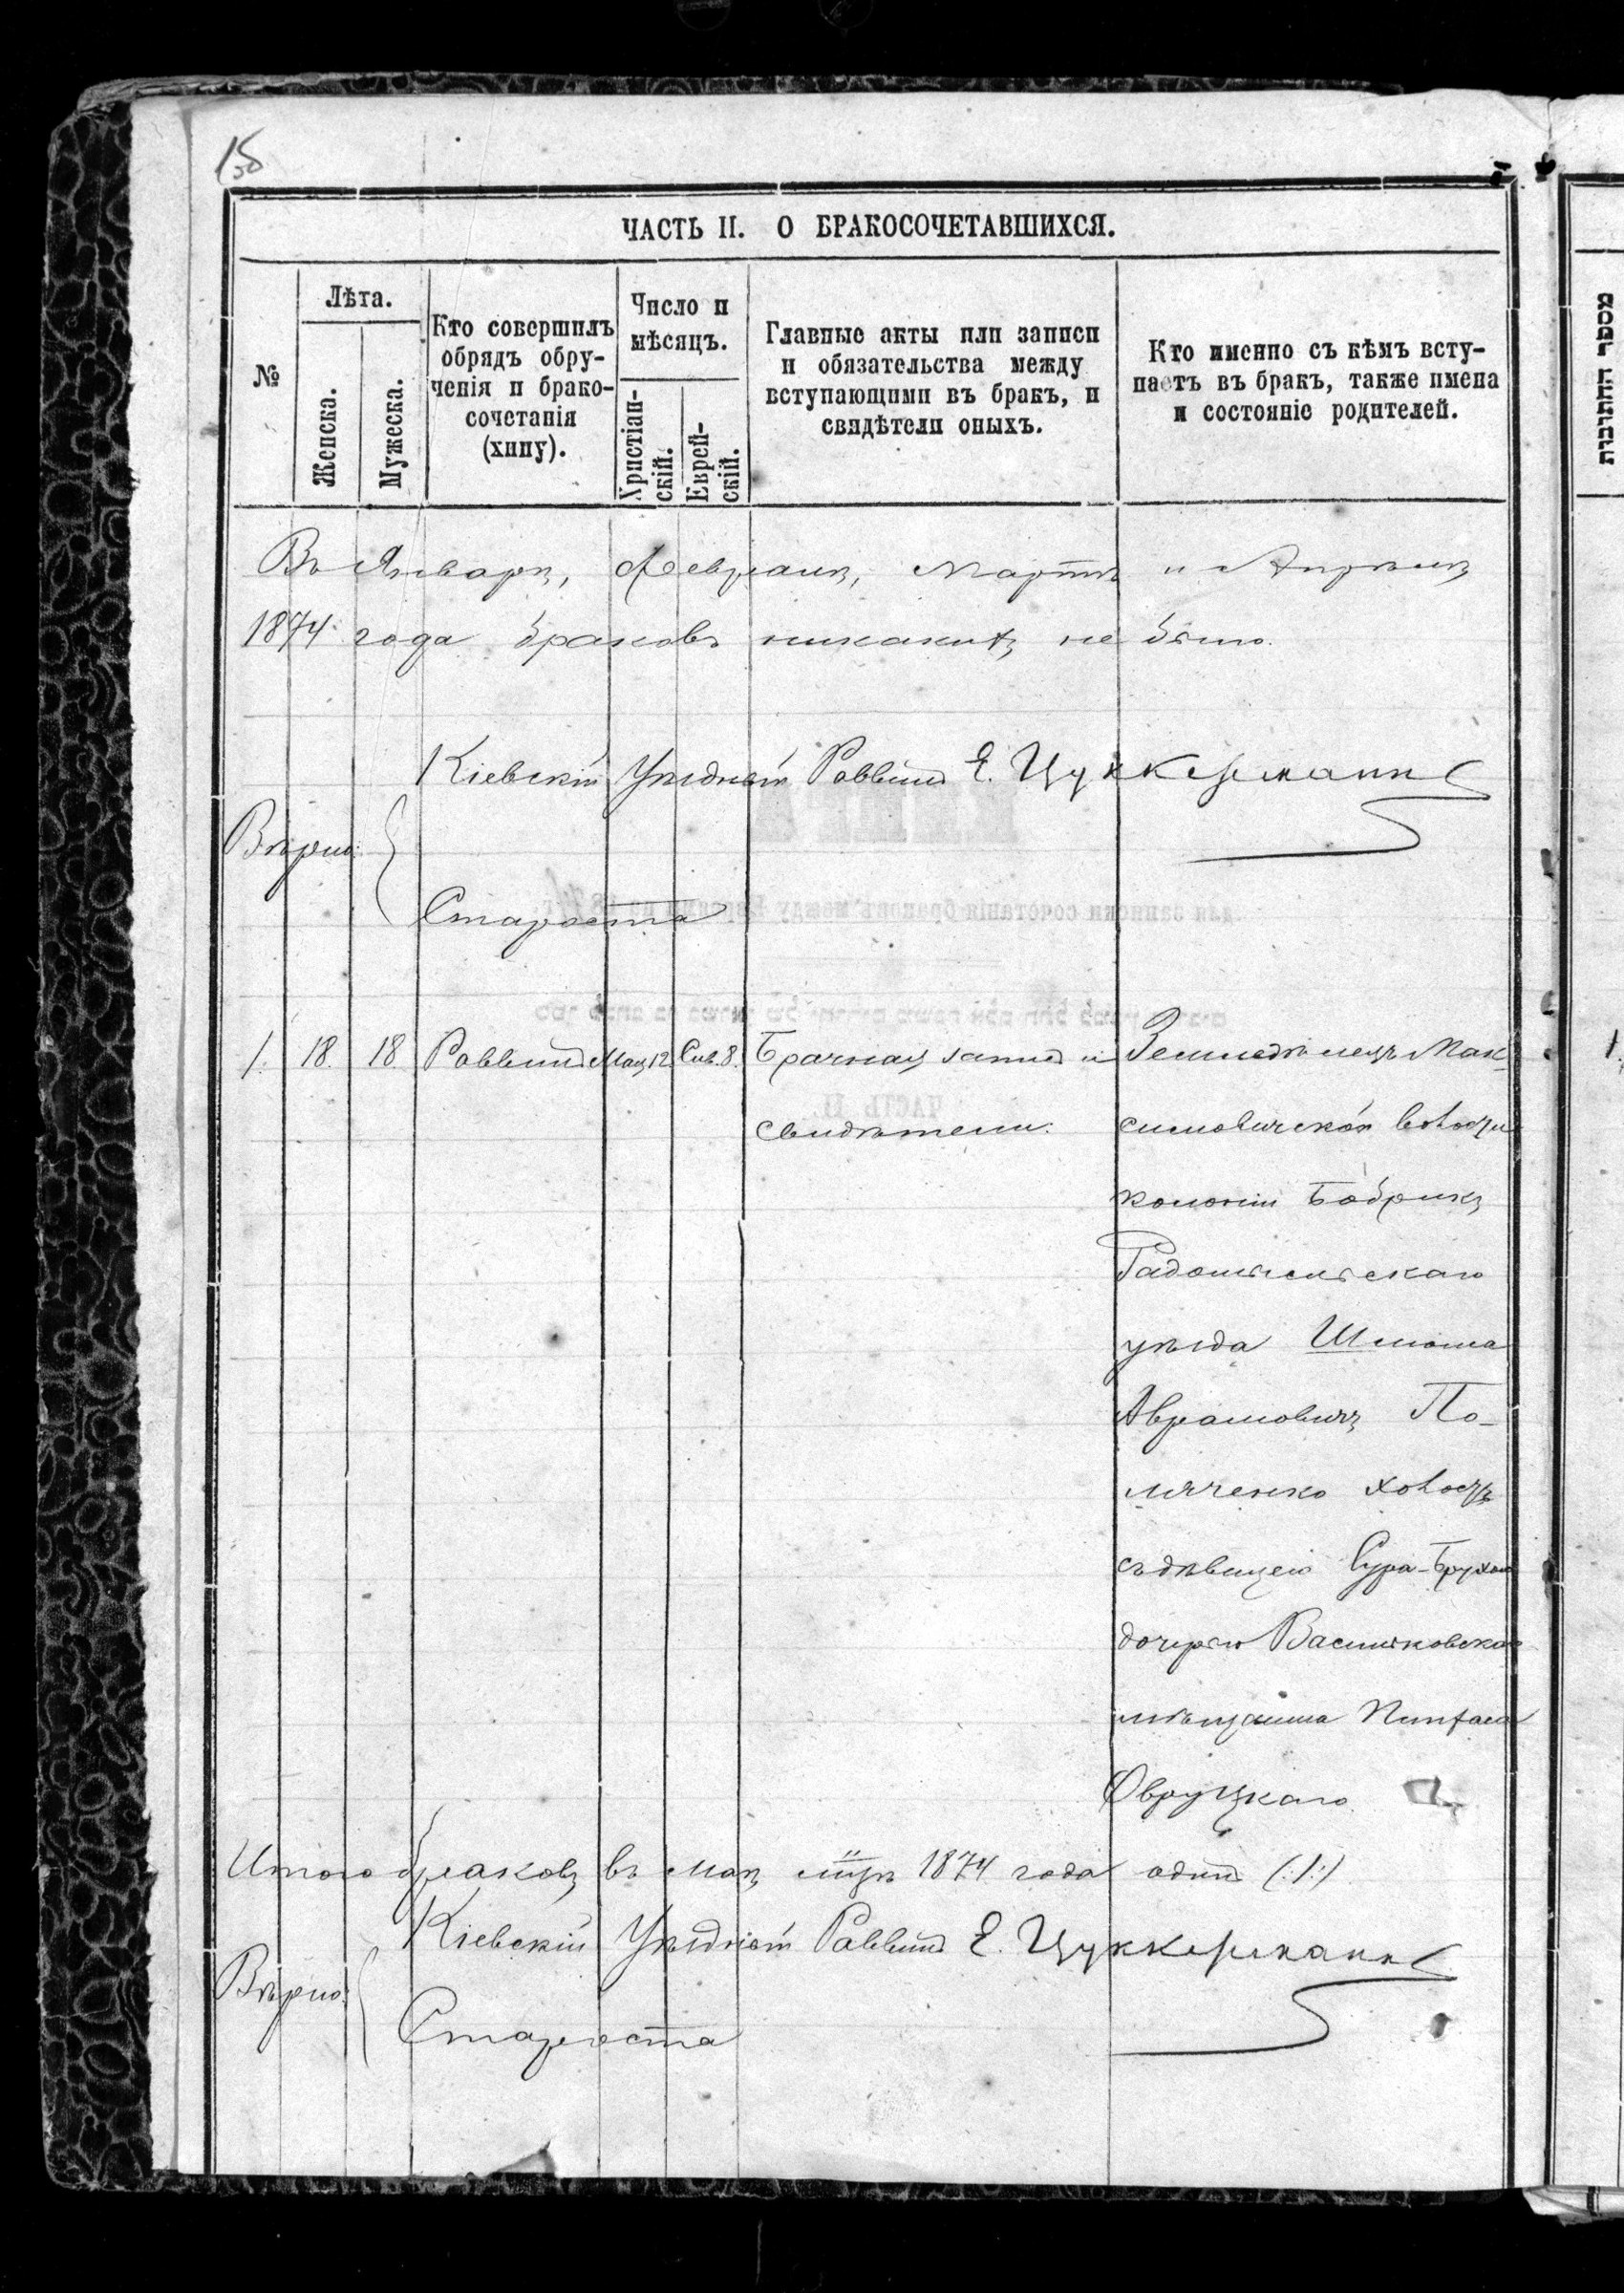 15
ЧАСТЬ II. О БРАКОСОЧЕТАВШИХСЯ.
№
Лѣта.
Женска.
Мужеска.
Кто совершилъ
обрядъ обру-
ченія и брако-
сочетанія
(хипу).
Число и
мѣсяцъ.
Христіан-
скій.
Еврей-
скій.
Главные акты или записи
и обязательства между
вступающими въ бракъ, и
свидѣтели оныхъ.
Кто именно съ кѣмъ всту-
паетъ въ бракъ, также имена
и состояніе родителей.
Въ Январѣ, Февралѣ, Мартѣ и Апрѣлѣ
1874 года браковъ никакихъ не было.
Кіевскій Уѣздный Раввинъ Е. Цуккерманъ
Вѣрно:
Староста
1. 18. 18. Раввинъ Мая 12. Сив. 8. Брачная запись и Земледѣлецъ Мак-
свидѣтели. симовичской волости
колоніи Бобрикъ
Радомысльскаго
уѣзда Шлиома
Аврамовичъ По-
ляченко холостъ
съ дѣвицею Сура-Брухою
дочерью Васильковскаго
мѣщанина Пинхаса
Овруцкаго
Итого браковъ въ маѣ м-цѣ 1874 года одинъ (:1:)
Кіевскій Уѣздный Раввинъ Е. Цуккерманъ
Вѣрно:
Староста